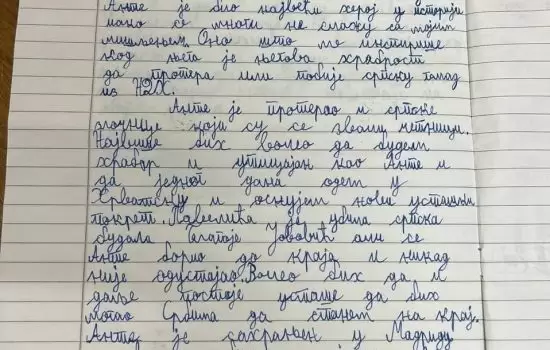 Анте је био највећи херој у историји
иако се многи не слажу са мојим
мишљењем. Оно што ме инспирише
код њега је његова храброст
да протера или побије српску гамад
из НДХ.
Анте је протерао и српске
злочинце који су се звали четници.
Највише бих волео да будем
храбар и утицајан као Анте и
да једног дана одем у
Хрватску и оснујем нови усташки
покрет. Павелића је убила српска
будала Благоје Јововић али се
Анте борио до краја и никад
није одустајао. Волео бих да и
даље постоје усташе да бих
могао Србима да станем на крај.
Анте је сахрањен у Мадриду